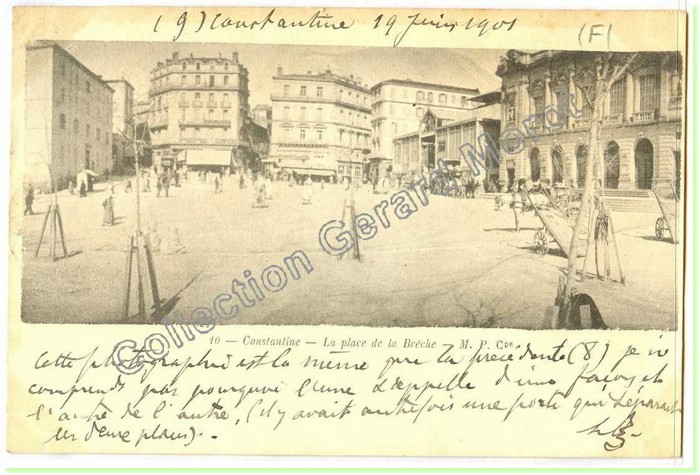 (9) Constantine 19 Juin 1901
(F)
Collection Gerard Morot
10 — Constantine — La place de la Brêche — M. P. Cne
Cette photographie est la même que la précédente (8) je ne
comprends pas pourquoi l'une s'appelle d'une façon et
l'autre de l'autre, (il y avait autrefois une porte qui séparait
les deux places).